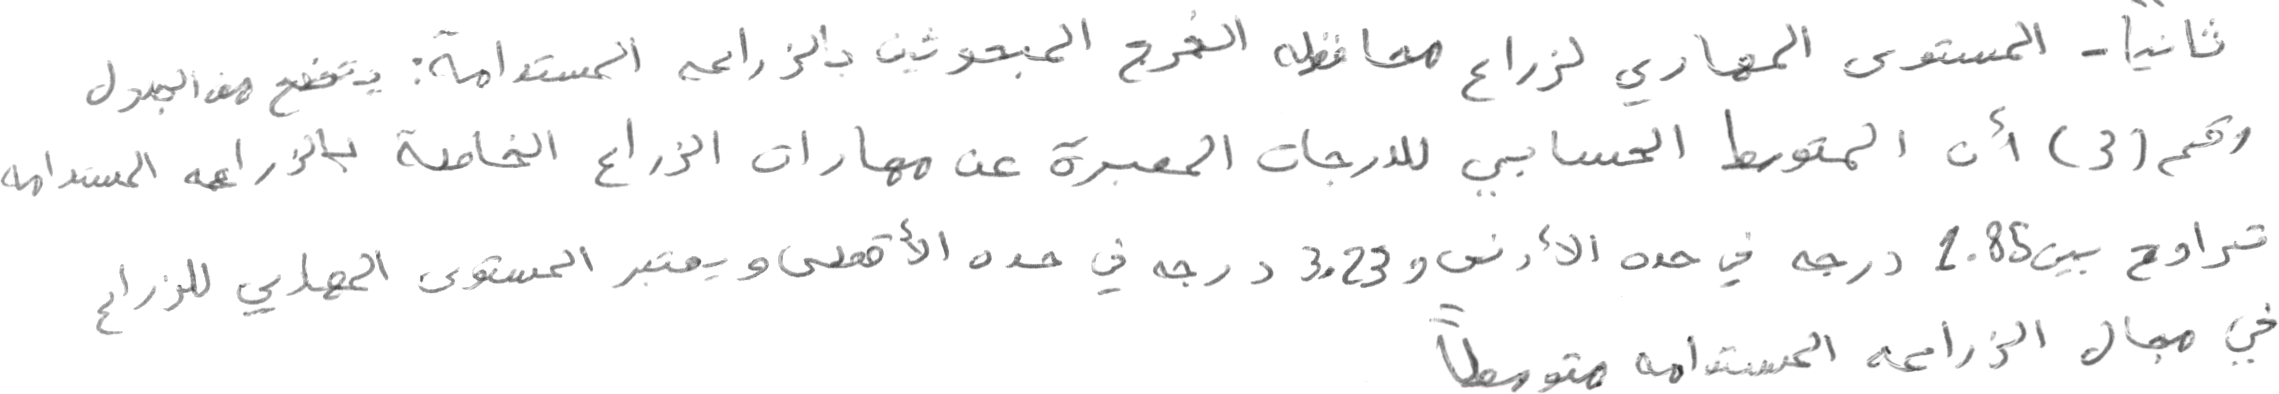 ثانياً - المستوى المهاري لزراع محافظه الخرج المبحوثين بالزراعه المستدامة: يتضح من الجدول
رقم (3) أن المتوسط الحسابي للدرجات المعبرة عن مهارات الزراع الخاصة بالزراعه المستدامه
تراوح بين 1.85 درجه في حده الأدنى و 3.23 درجه في حده الأقصى ويعتبر المستوى المهاري للزراع
في مجال الزراعه المستدامه متوسطاً